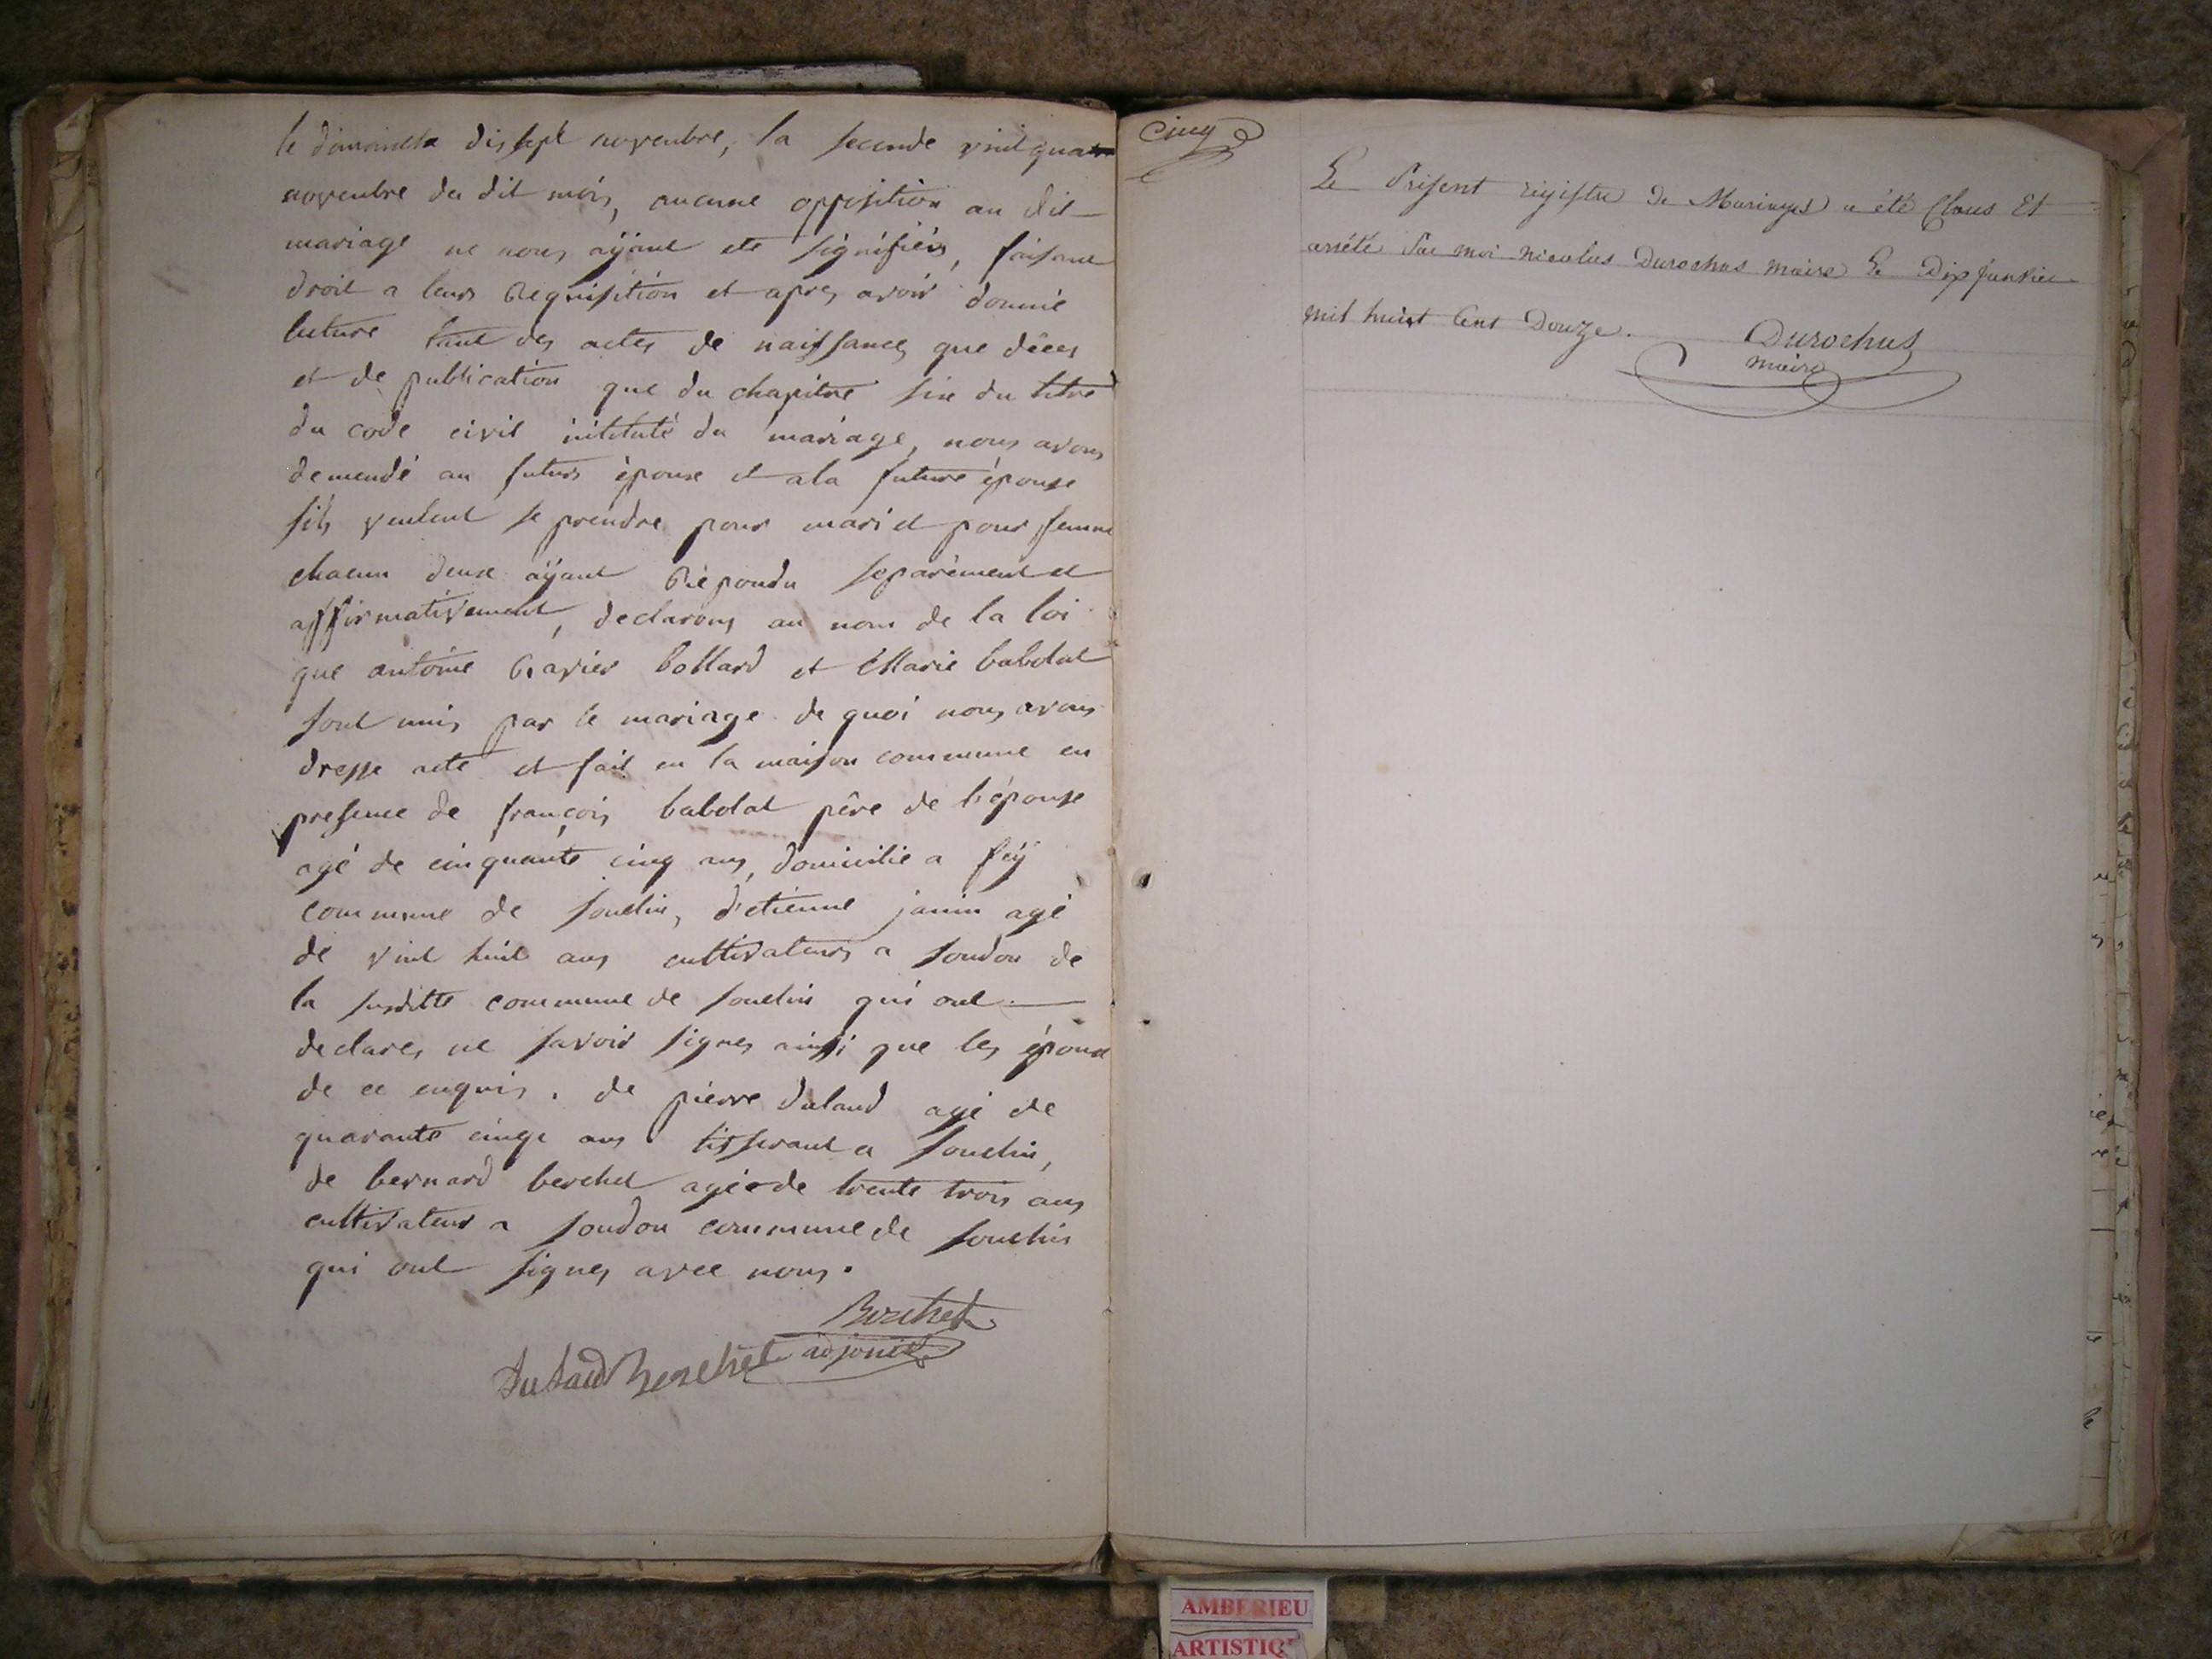 le dimanche dissept novembre, la seconde vint quatre
novembre du dit mois, aucune opposition au dit
mariage ne nous aÿant ete signifiés, faisant
droit a leurs requisition et apres avoir donnié
lecture tant des actes de naissances que décès
et de publication que du chapitre six du titre
du code civil intitulé du mariage, nous avons
demendé au futurs épouse et a la future épouse
sils veulent se prendre pour mari et pour femme
chacun deux aÿant répondu séparément et
affirmativement, declarons au nom de la loi
que antoine bollard et Marie babolat
sont unis par le mariage de quoi nous avons
dresse acte et fait en la maison commune en
presence de françois babolat père de l'épouse
agé de cinquante cinq ans, domicilié a fÿ
commune de souclin, d'etienne janin agé
de vint huit ans cultivateurs a soudon de
la susditte commune de souclin qui ont
declares ne savoir signes ainssi que les épouse
de ce enquis. de pierre dulaud agé de
quarante cinqe ans tisserant a souclin,
de bernard berchet agé de trente trois ans
cultivateur a soudon commune de souclin
qui ont signes avec nous.
Berchet
adjoint
dulaud Berchet
cinq
Le Présent régistre de Mariages a été Clous Et
arrêté Par moi nicolas Durochas maire Le Dix janvier
mil huist Cent Douze.
Durochas
maire
AMBERIEU
ARTISTIQ